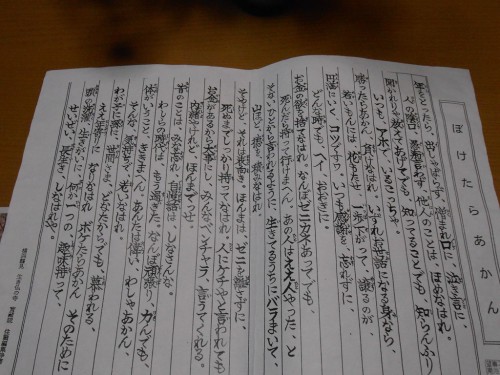 ぼけたらあかん
年をとったら、出しゃばらず、憎まれ口に、泣き言に、
人の陰口、愚痴言わず、他人のことは、ほめなはれ。
聞かれりゃ教えてあげてでも、知ってることでも、知らんふり
いつも、アホで、いることっちゃ。
勝ったらあかん、負けなはれ、いずれお世話になる身なら、
若いもんには、花もたせ、一歩下がって、譲るのが、
円満にいく、コツですワ。いつも感謝を、忘れずに、
どんな時でも、ヘイ、おおきに。
お金の欲を、捨てなはれ。なんぼゼニカネあってでも、
死んだら持って行けまへん。あの人はええ人やった、と
そないひとから言われるように、生きてるうちにバラまいて、
山ほど、徳を、積みなはれ
そやけど、それは表向。ほんまは、ゼニを離さずに、
死ぬまでしっかり持ってなはれ、人にケチやと言われても、
お金があるから大事にし、みんなベンチャラ、言うてくれる。
内緒やけれど、ほんまでっせ。
昔のことは、みな忘れ、自慢話は、しなさんな。
わしらの時代は、もう過ぎた。なんぼ頑張り、力んでも、
体がいうこと、ききまへん、あんたは偉い、わしゃあかん、
そんな気持ちで、おいなはれ。
わが子に孫に、世間さま、どなたからでも、慕われる、
ええ年寄りに、なりなはれ、ボケたらあかん そのために
頭の洗濯、生きがいに、何か一つの、趣味持って、
せいぜい、長生き、しなはれや。